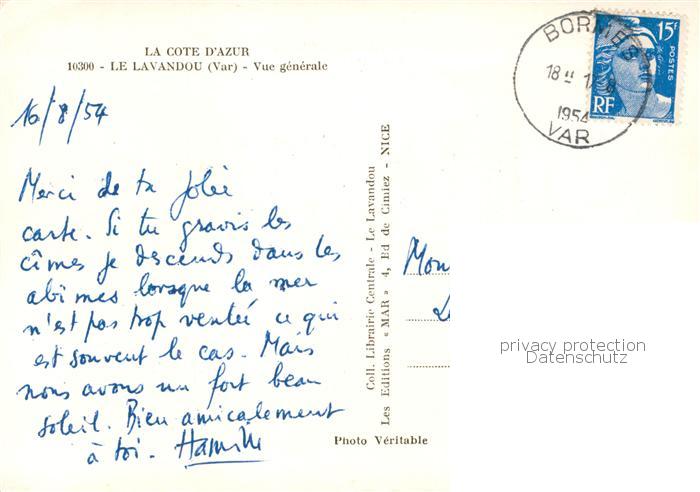 LA COTE D'AZUR
10300 - LE LAVANDOU (Var) - Vue générale
16/8/54
Merci de ta jolie
carte. Si tu gravis les
cîmes je descends dans les
abîmes lorsque la mer
n'est pas trop ventée ce qui
est souvent le cas. Mais
nous avons un fort beau
soleil. Bien amicalement
à toi.
Coll. Librairie Centrale - Le Lavandou
Les Editions « MAR » 4, Ed de Cimiez - NICE
Photo Véritable
BORMES
18 H 17-8
1954
VAR
15F
POSTES
RF
privacy protection
Datenschutz